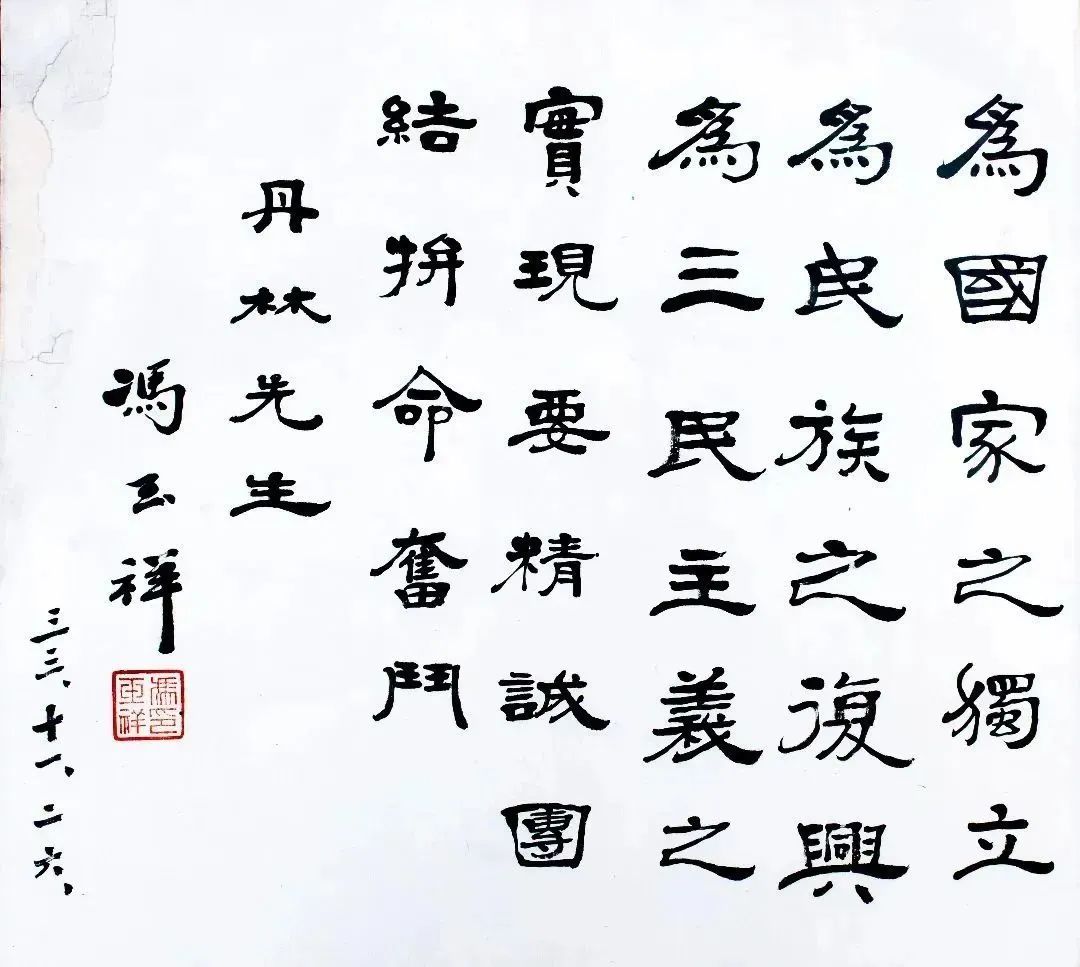 為國家之獨立
為民族之復興
為三民主義之
實現要精誠團
結拚命奮鬥
丹林先生
馮玉祥
三三、十一、二六、
馮印玉祥